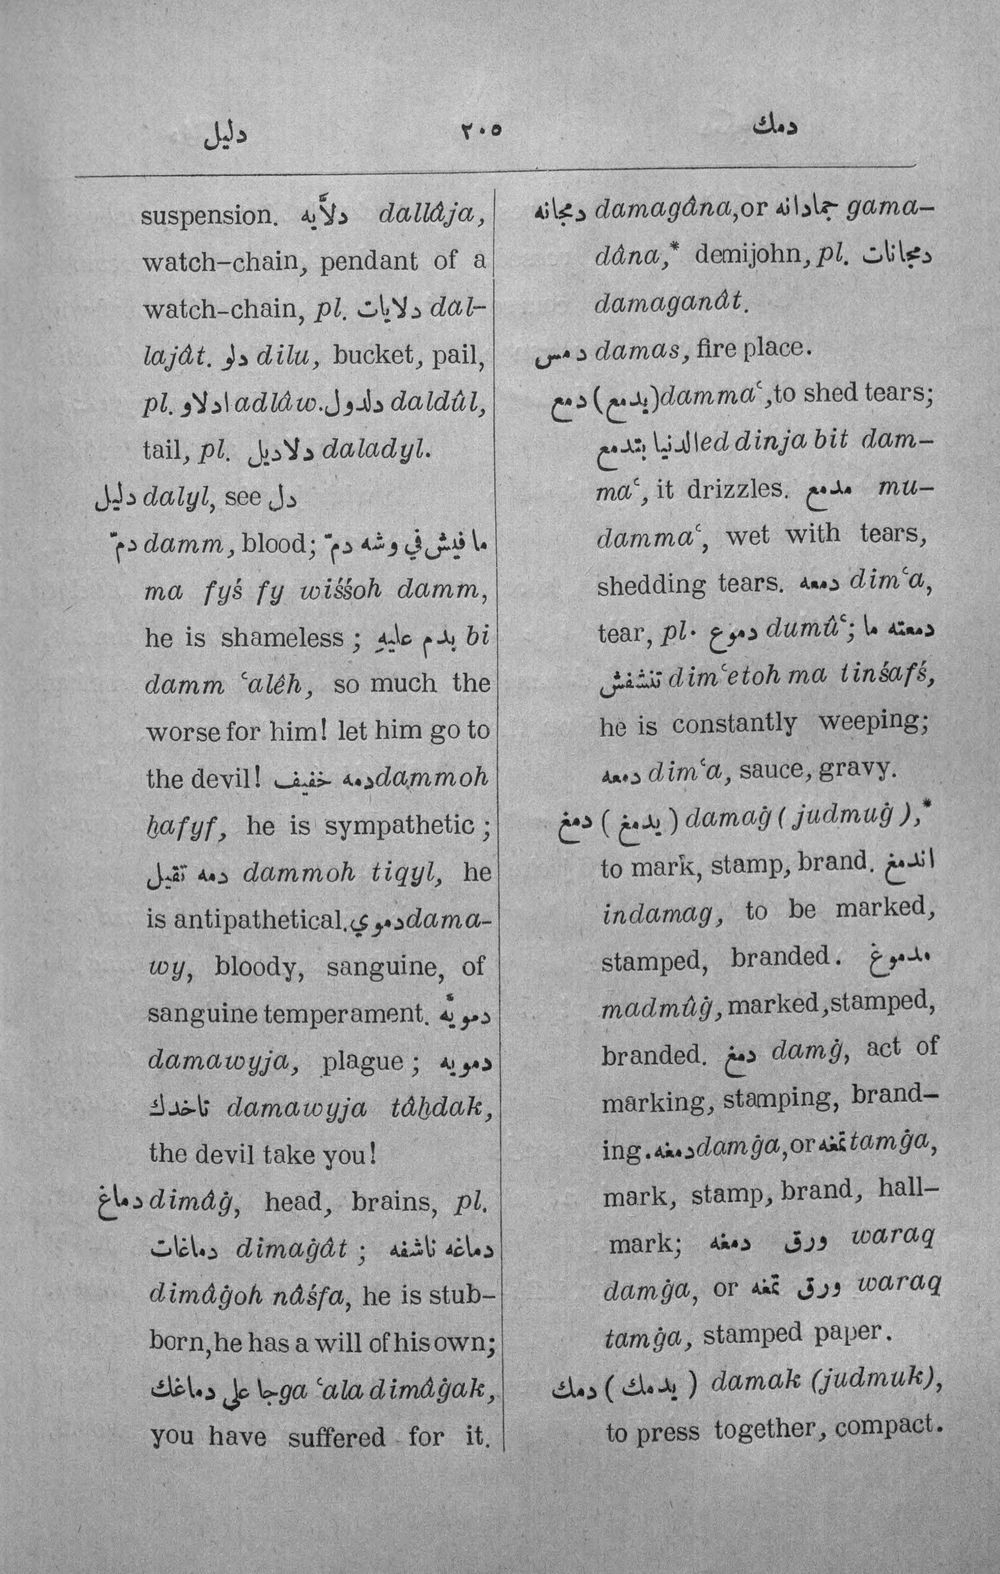 دليل ٢٠٥ دمك
suspension. دلاَّيه dallâja,
watch-chain, pendant of a
watch-chain, pl. دلايات dal-
lajât. دلو dilu, bucket, pail,
pl. ادلاو adlâw. دلدول daldûl,
tail, pl. دلاديل daladyl.
دليل dalyl, see دل
دمّ damm, blood; ما فيش في وشه دمّ
ma fyś fy wiśśoh damm,
he is shameless; بدم عليهِ bi
damm ʿalêh, so much the
worse for him! let him go to
the devil! دمه خفيف dammoh
ḫafyf, he is sympathetic;
دمه تقيل dammoh tiqyl, he
is antipathetical. دموي dama-
wy, bloody, sanguine, of
sanguine temperament. دمويَّه
damawyja, plague; دمويه
تاخدك damawyja tâḫdak,
the devil take you!
دماغ dimâġ, head, brains, pl.
دماغات dimaġât; دماغه ناشفه
dimâġoh nâśfa, he is stub-
born, he has a will of his own;
جا على دماغك ga ʿala dimâġak,
you have suffered for it.
دمجانه damagâna, or جمادانه gama-
dâna,* demijohn, pl. دمجانات
damaganât.
دمس damas, fire place.
دمع (يدمع) dammaʿ, to shed tears;
الدنيا بتدمع ed dinja bit dam-
maʿ, it drizzles. مدمع mu-
dammaʿ, wet with tears,
shedding tears. دمعه dimʿa,
tear, pl. دموع dumûʿ; دمعته ما
تنشفش dimʿetoh ma tinśafś,
he is constantly weeping;
دمعه dimʿa, sauce, gravy.
دمغ (يدمغ) damaġ (judmuġ),*
to mark, stamp, brand. اندمغ
indamag, to be marked,
stamped, branded. مدموغ
madmûġ, marked, stamped,
branded. دمغ damġ, act of
marking, stamping, brand-
ing. دمغه damġa, or تمغه tamġa,
mark, stamp, brand, hall-
mark; ورق دمغه waraq
damġa, or ورق تمغه waraq
tamġa, stamped paper.
دمك (يدمك) damak (judmuk),
to press together, compact.